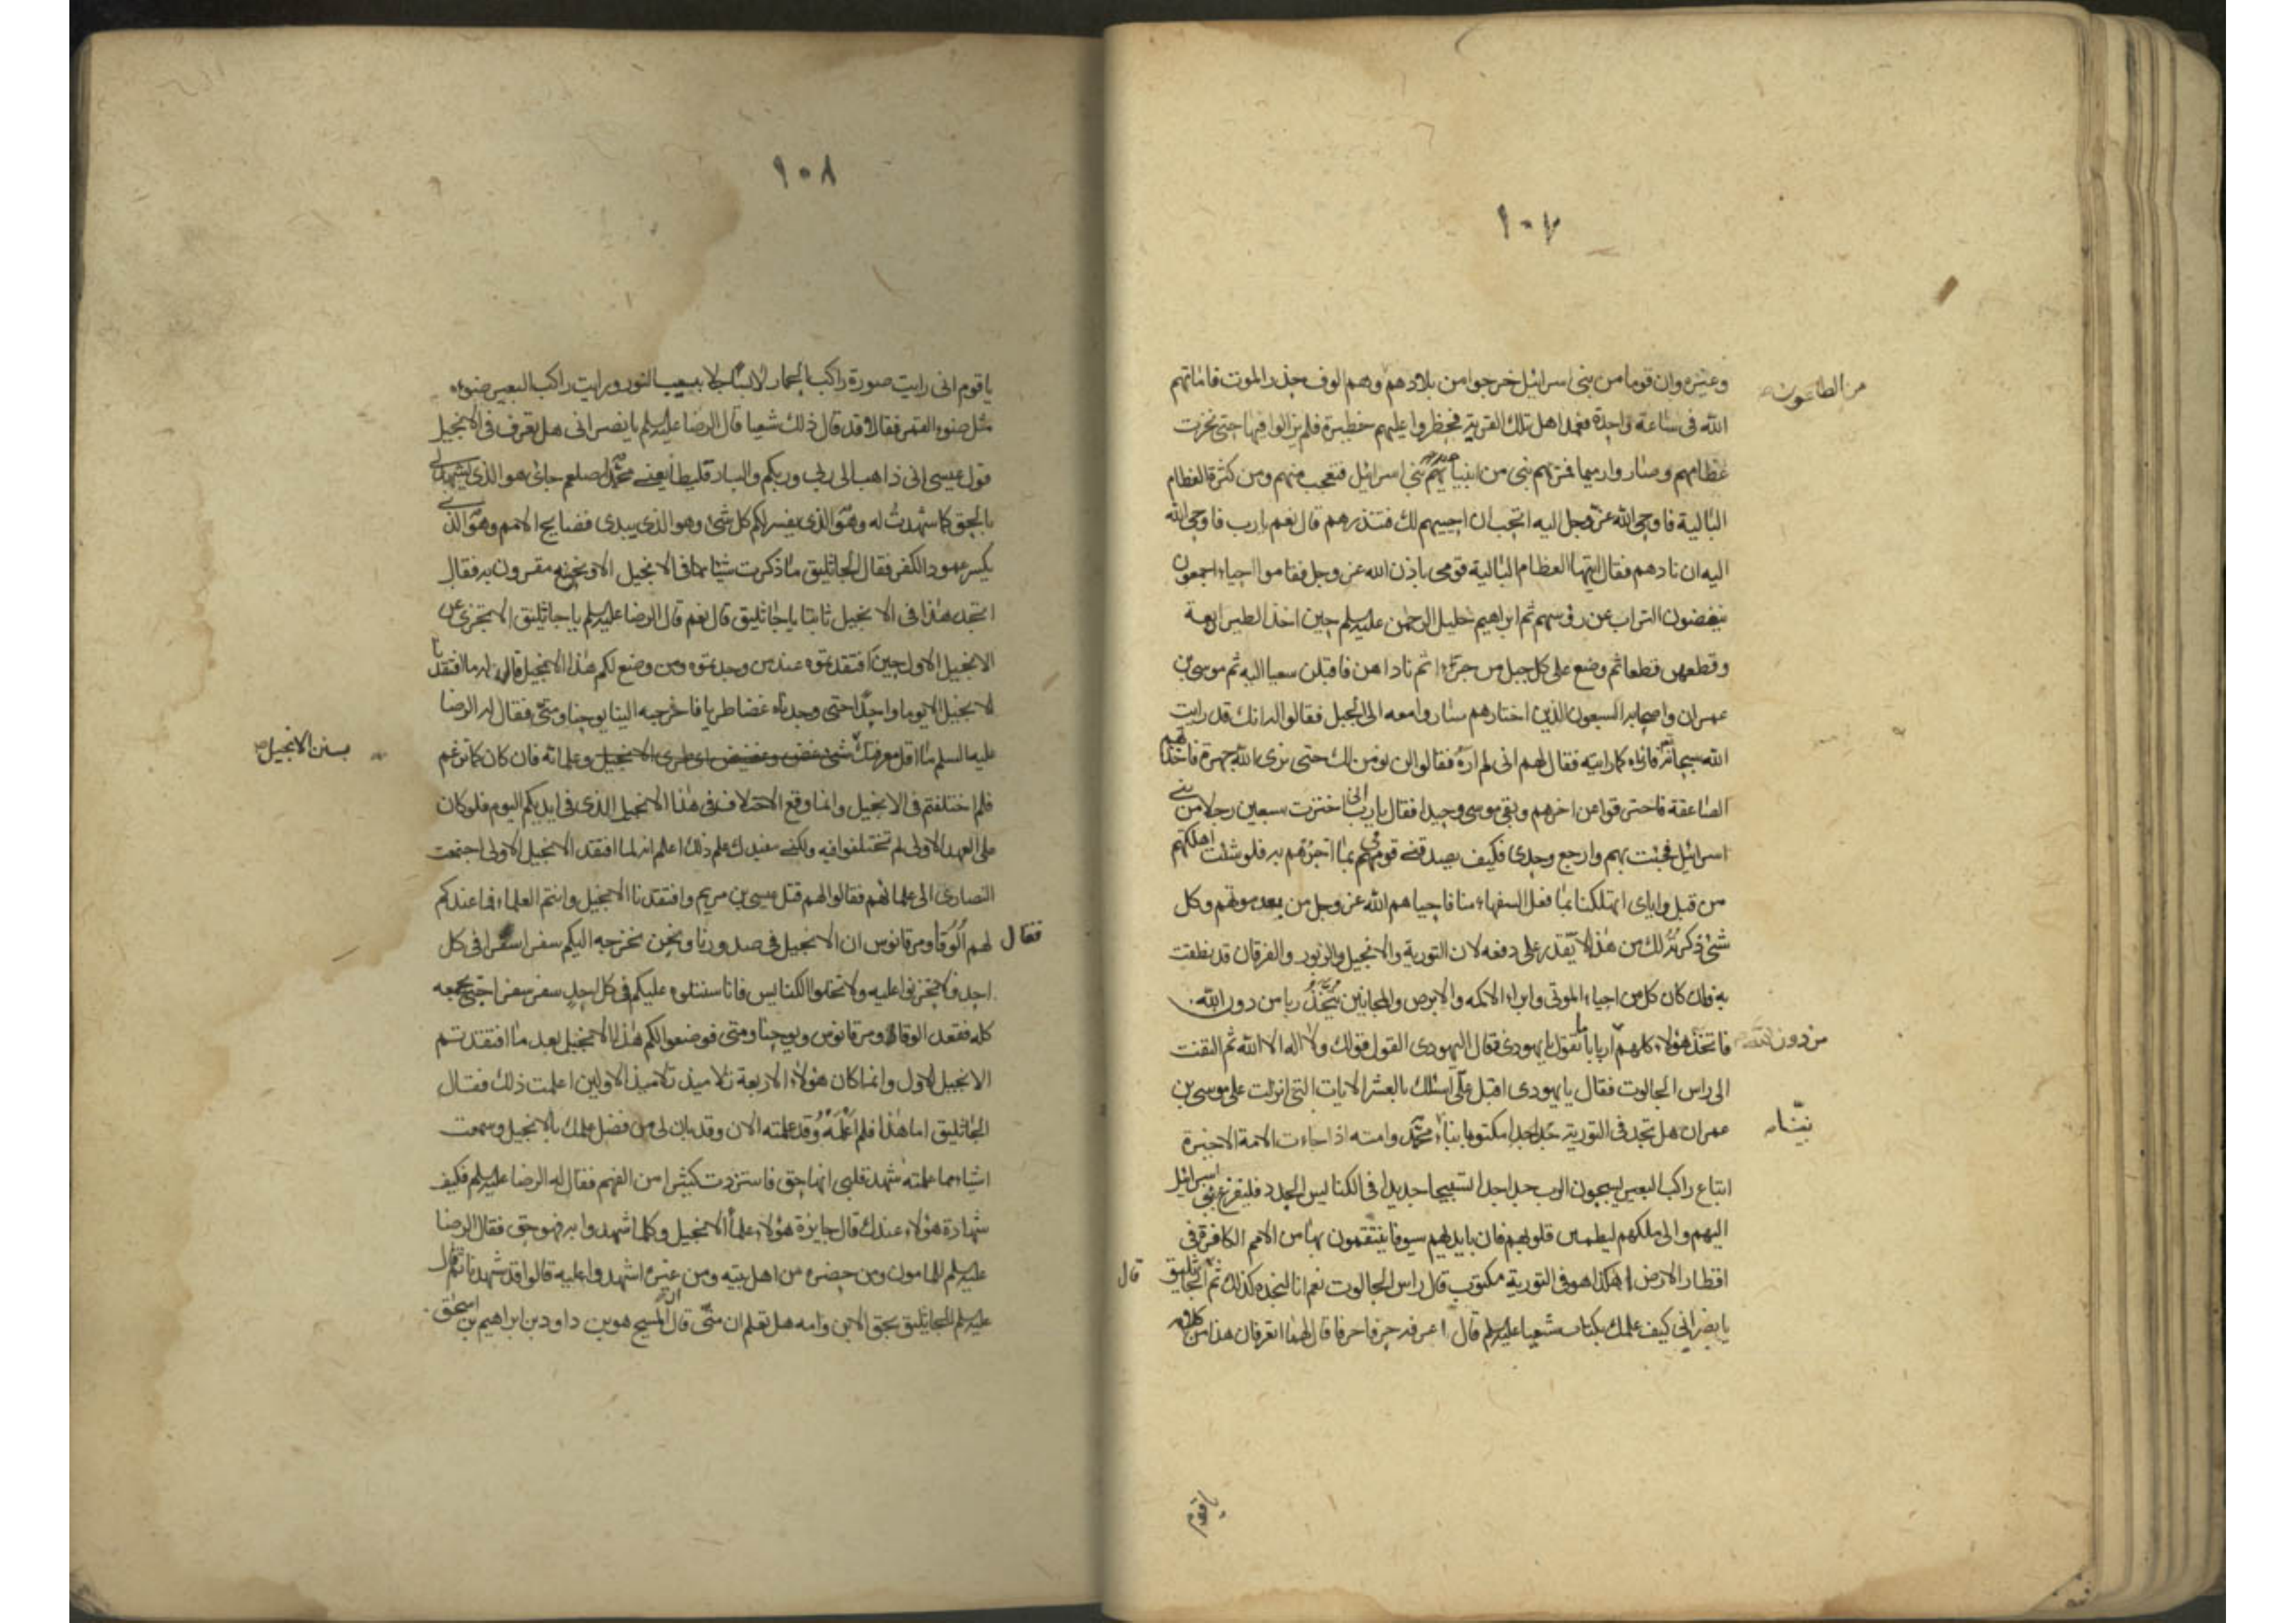 ١٠٧
وغيره وان قوما من بنى اسرائيل خرجوا من بلادهم وهم الوف حذر الموت فاماتهم
من الطاعون
الله فى ساعة واحدة فعمد اهل تلك القرية فحظروا عليهم حظيرة فلم يزالوا فيها حتى نخرت
عظامهم وصاروا رميما فمر بهم نبى من انبياء بنى اسرائيل فتعجب منهم ومن كثرة العظام
البالية فاوحى الله عز وجل اليه اتحب ان احييهم لك فتنذرهم قال نعم يارب فاوحى الله
اليه ان نادهم فقال ايتها العظام البالية قومى باذن الله عز وجل فقاموا احياء اجمعون
ينفضون التراب عن رؤسهم ثم ابراهيم خليل الرحمن عليه السلم حين اخذ الطير اربعة
وقطعهن قطعا ثم وضع على كل جبل من جزءا ثم ناداهن فاقبلن سعيا اليه ثم موسى بن
عمران واصحابه السبعون الذين اختارهم صاروا معه الى الجبل فقالوا له انك قد رايت
الله سبحانه فارناه كما رايته فقال لهم انى لم اره فقالوا لن نومن لك حتى نرى الله جهرة فاخذتهم
الصاعقة فاحترقوا من اخرهم وبقى موسى وحيدا فقال يارب انى اخترت سبعين رجلا من بنى
اسرائيل فجئت بهم وارجع وحدى فكيف يصدقنى قومى بما اخبرهم به فلو شئت اهلكتهم
من قبل واياى اتهلكنا بما فعل السفهاء منا فاحياهم الله عز وجل من بعد موتهم وكل
شئ ذكرته لك من هذا لا تقدر على دفعه لان التورية والانجيل والزبور والفرقان قد نطقت
به فان كان كل من احياء الموتى وابراء الاكمه والابرص والمجانين يتخذ ربا من دون الله
فاتخذ هؤلاء كلهم اربابا ما تقول يا يهودى فقال اليهودى القول قولك ولا اله الا الله ثم التفت
من دون الله
الى راس الجالوت فقال يا يهودى اقبل على اسئلك بالعشر الايات التى انزلت على موسى بن
عمران هل تجد فى التورية مكتوبا بنباء محمد وامته اذا جاءت الامة الاخيرة
اتباع راكب البعير يسبحون الرب جدا جدا تسبيحا جديدا فى الكنايس الجدد فليفزع بنى اسرائيل
اليهم والى ملكهم ليطمئن قلوبهم فان بايديهم سيوفا ينتقمون بها من الامم الكافرة فى
اقطار الارض اهكذا هو فى التورية مكتوب قال راس الجالوت نعم انا لنجده كذلك ثم قال للجاثليق
يا نصرانى كيف علمك بكتاب شعيا عليه السلم قال اعرفه حرفا حرفا قال لهما اتعرفان هذا من كلامه
يا قوم
١٠٨
يا قوم انى رايت صورة راكب الحمار لابسا جلابيب النور ورايت راكب البعير ضوءه
مثل ضوء القمر فقالا قد قال ذلك شعيا قال الرضا عليه السلم يا نصرانى هل تعرف فى الانجيل
قول عيسى انى ذاهب الى ربى وربكم والبارقليطا يعنى محمد صلعم جائ هو الذى يشهد لى
بالحق كما شهدت له وهو الذى يفسر لكم كل شئ وهو الذى يبدى فضايح الامم وهو الذى
يكسر عمود الكفر فقال الجاثليق ما ذكرت شيئا مما فى الانجيل الا ونحن مقرون به فقال
اتجد هذا فى الانجيل ثابتا يا جاثليق قال نعم قال الرضا عليه السلم يا جاثليق الا تخبرنى عن
الانجيل الاول حين افتقدتموه عند من وجدتموه ومن وضع لكم هذا الانجيل قال له ما افتقدنا
الانجيل الا يوما واحدا حتى وجدناه غضا طريا فاخرجه الينا يوحنا ومتى فقال له الرضا
عليه السلم ما اقل معرفتك وعلمائه فان كان كما تزعم
بسنن الانجيل
فلم اختلفتم فى الانجيل وانما وقع الاختلاف فى هذا الانجيل الذى فى ايديكم اليوم فلو كان
على العهد الاول لم تختلفوا فيه ولكنى مفيدك علم ذلك اعلم انه لما افتقد الانجيل الاول اجتمعت
النصارى الى علمائهم فقالوا لهم قتل عيسى بن مريم وافتقدنا الانجيل وانتم العلماء فما عندكم
فقال لهم الوقا ومرقانوس ان الانجيل فى صدورنا ونحن نخرجه اليكم سفرا سفرا فى كل
احد فلا تحزنوا عليه ولا تخلوا الكنايس فانا سنتلوه عليكم فى كل احد سفر سفرا حتى نجمعه
كله فقعد الوقا ومرقانوس ويوحنا ومتى فوضعوا لكم هذا الانجيل بعد ما افتقدتم
الانجيل الاول وانما كان هؤلاء الاربعة تلاميذ تلاميذ الاولين اعلمت ذلك فقال
الجاثليق اما هذا فلم اعلمه وقد علمته الان وقد بان لى من فضل علمك بالانجيل وسمعت
اشياء مما علمته شهد قلبى انها حق فاستزدت كثيرا من الفهم فقال له الرضا عليه السلم فكيف
شهادة هؤلاء عندك قال جايزة هؤلاء علماء الانجيل وكلما شهدوا به فهو حق فقال الرضا
عليه السلم للمامون ومن حضره من اهل بيته ومن غيره اشهدوا عليه قالوا قد شهدنا ثم قال
عليه السلم للجاثليق بحق الابن وامه هل تعلم ان متى قال ان المسيح هو بن داود بن ابراهيم بن اسحق